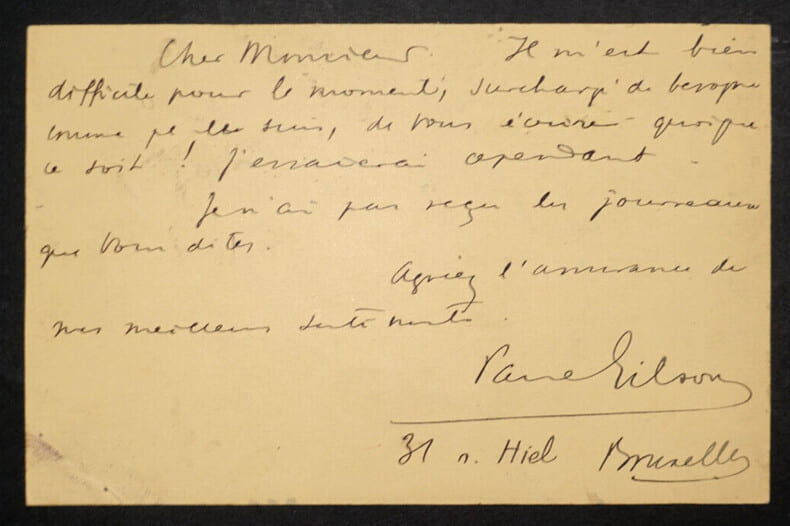 Cher Monsieur. Il m'est bien
difficile pour le moment, surchargé de besogne
comme je le suis, de vous écrire quoique
ce soit ! J'essaierai cependant.
Je n'ai pas reçu les journeaux
que vous dites.
Agréez l'assurance de
mes meilleurs sentiments.
Paul Gilson
31 r. Hiel Bruxelles